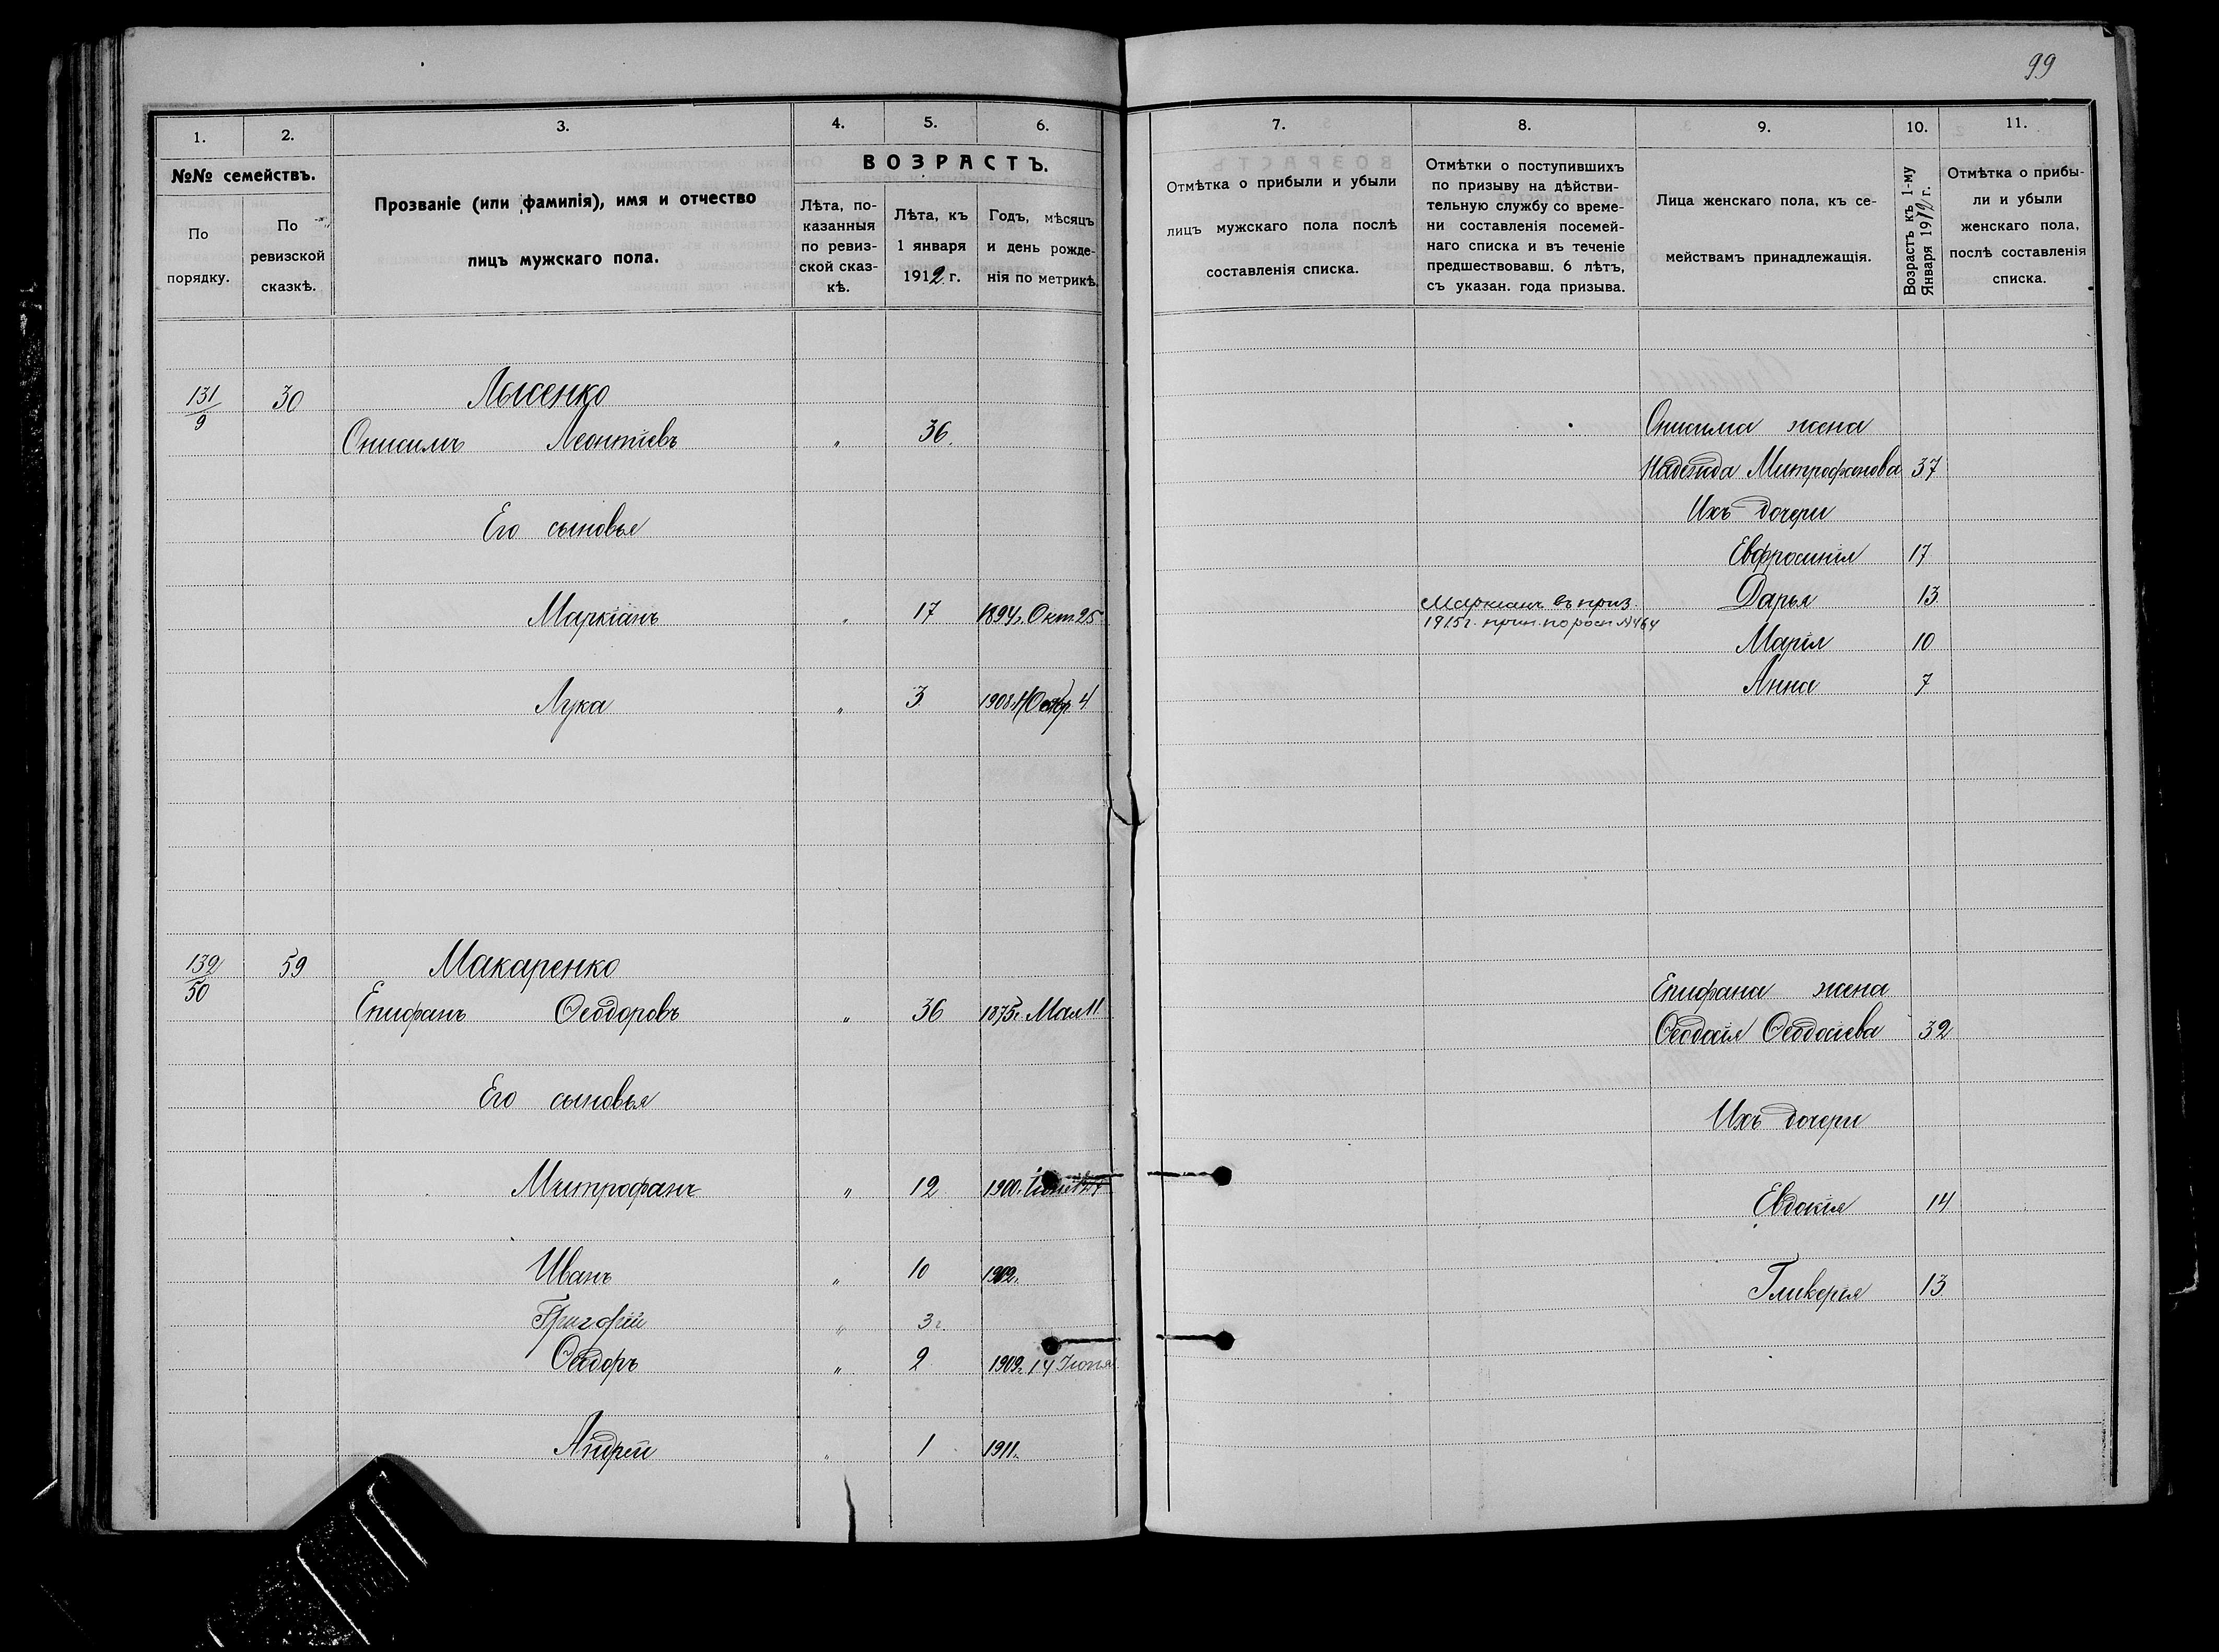 99
1. 2. 3. 4. 5. 6.
№№ семействъ.
По порядку.
По ревизской сказкѣ.
Прозваніе (или фамилія), имя и отчество
лицъ мужскаго пола.
ВОЗРАСТЪ.
Лѣта, по-
казанныя
по ревиз-
ской сказ-
кѣ.
Лѣта, къ
1 января
1912 г.
Годъ, мѣсяцъ
и день рожде-
нія по метрикѣ.
131/9 30 Лысенко
Онисимъ Леонтіевъ " 36.
Его сыновья
Маркіанъ " 17 1894г. Окт. 25
Лука " 3 1908г. 4
132/50 59 Макаренко
Епифанъ Ѳеодоровъ " 36 1875г. Мая 11
Его сыновья
Митрофанъ " 12 1900г.
Иванъ " 10 1902г.
Григорій " 3г.
Ѳеодоръ " 2 1909г. 14 Іюня
Андрей " 1 1911г.
7. 8. 9. 10. 11.
Отмѣтка о прибыли и убыли
лицъ мужскаго пола послѣ
составленія списка.
Отмѣтки о поступившихъ
по призыву на дѣйстви-
тельную службу со време-
ни составленія посемей-
наго списка и въ теченіе
предшествовавш. 6 лѣтъ,
съ указан. года призыва.
Лица женскаго пола, къ се-
мействамъ принадлежащія.
Возрастъ къ 1-му
Января 1912 г.
Отмѣтка о прибы-
ли и убыли
женскаго пола,
послѣ составленія
списка.
Онисима жена
Надежда Митрофанова 37
Ихъ дочери
Евфросинія 17
Маркіанъ въ приз. Дарья 13
1915г. прин. по росп №464
Марія 10
Анна 7
Епифана жена
Ѳеодосія Ѳеодосіева 32
Ихъ дочери
Евдокія 14
Гликерія 13